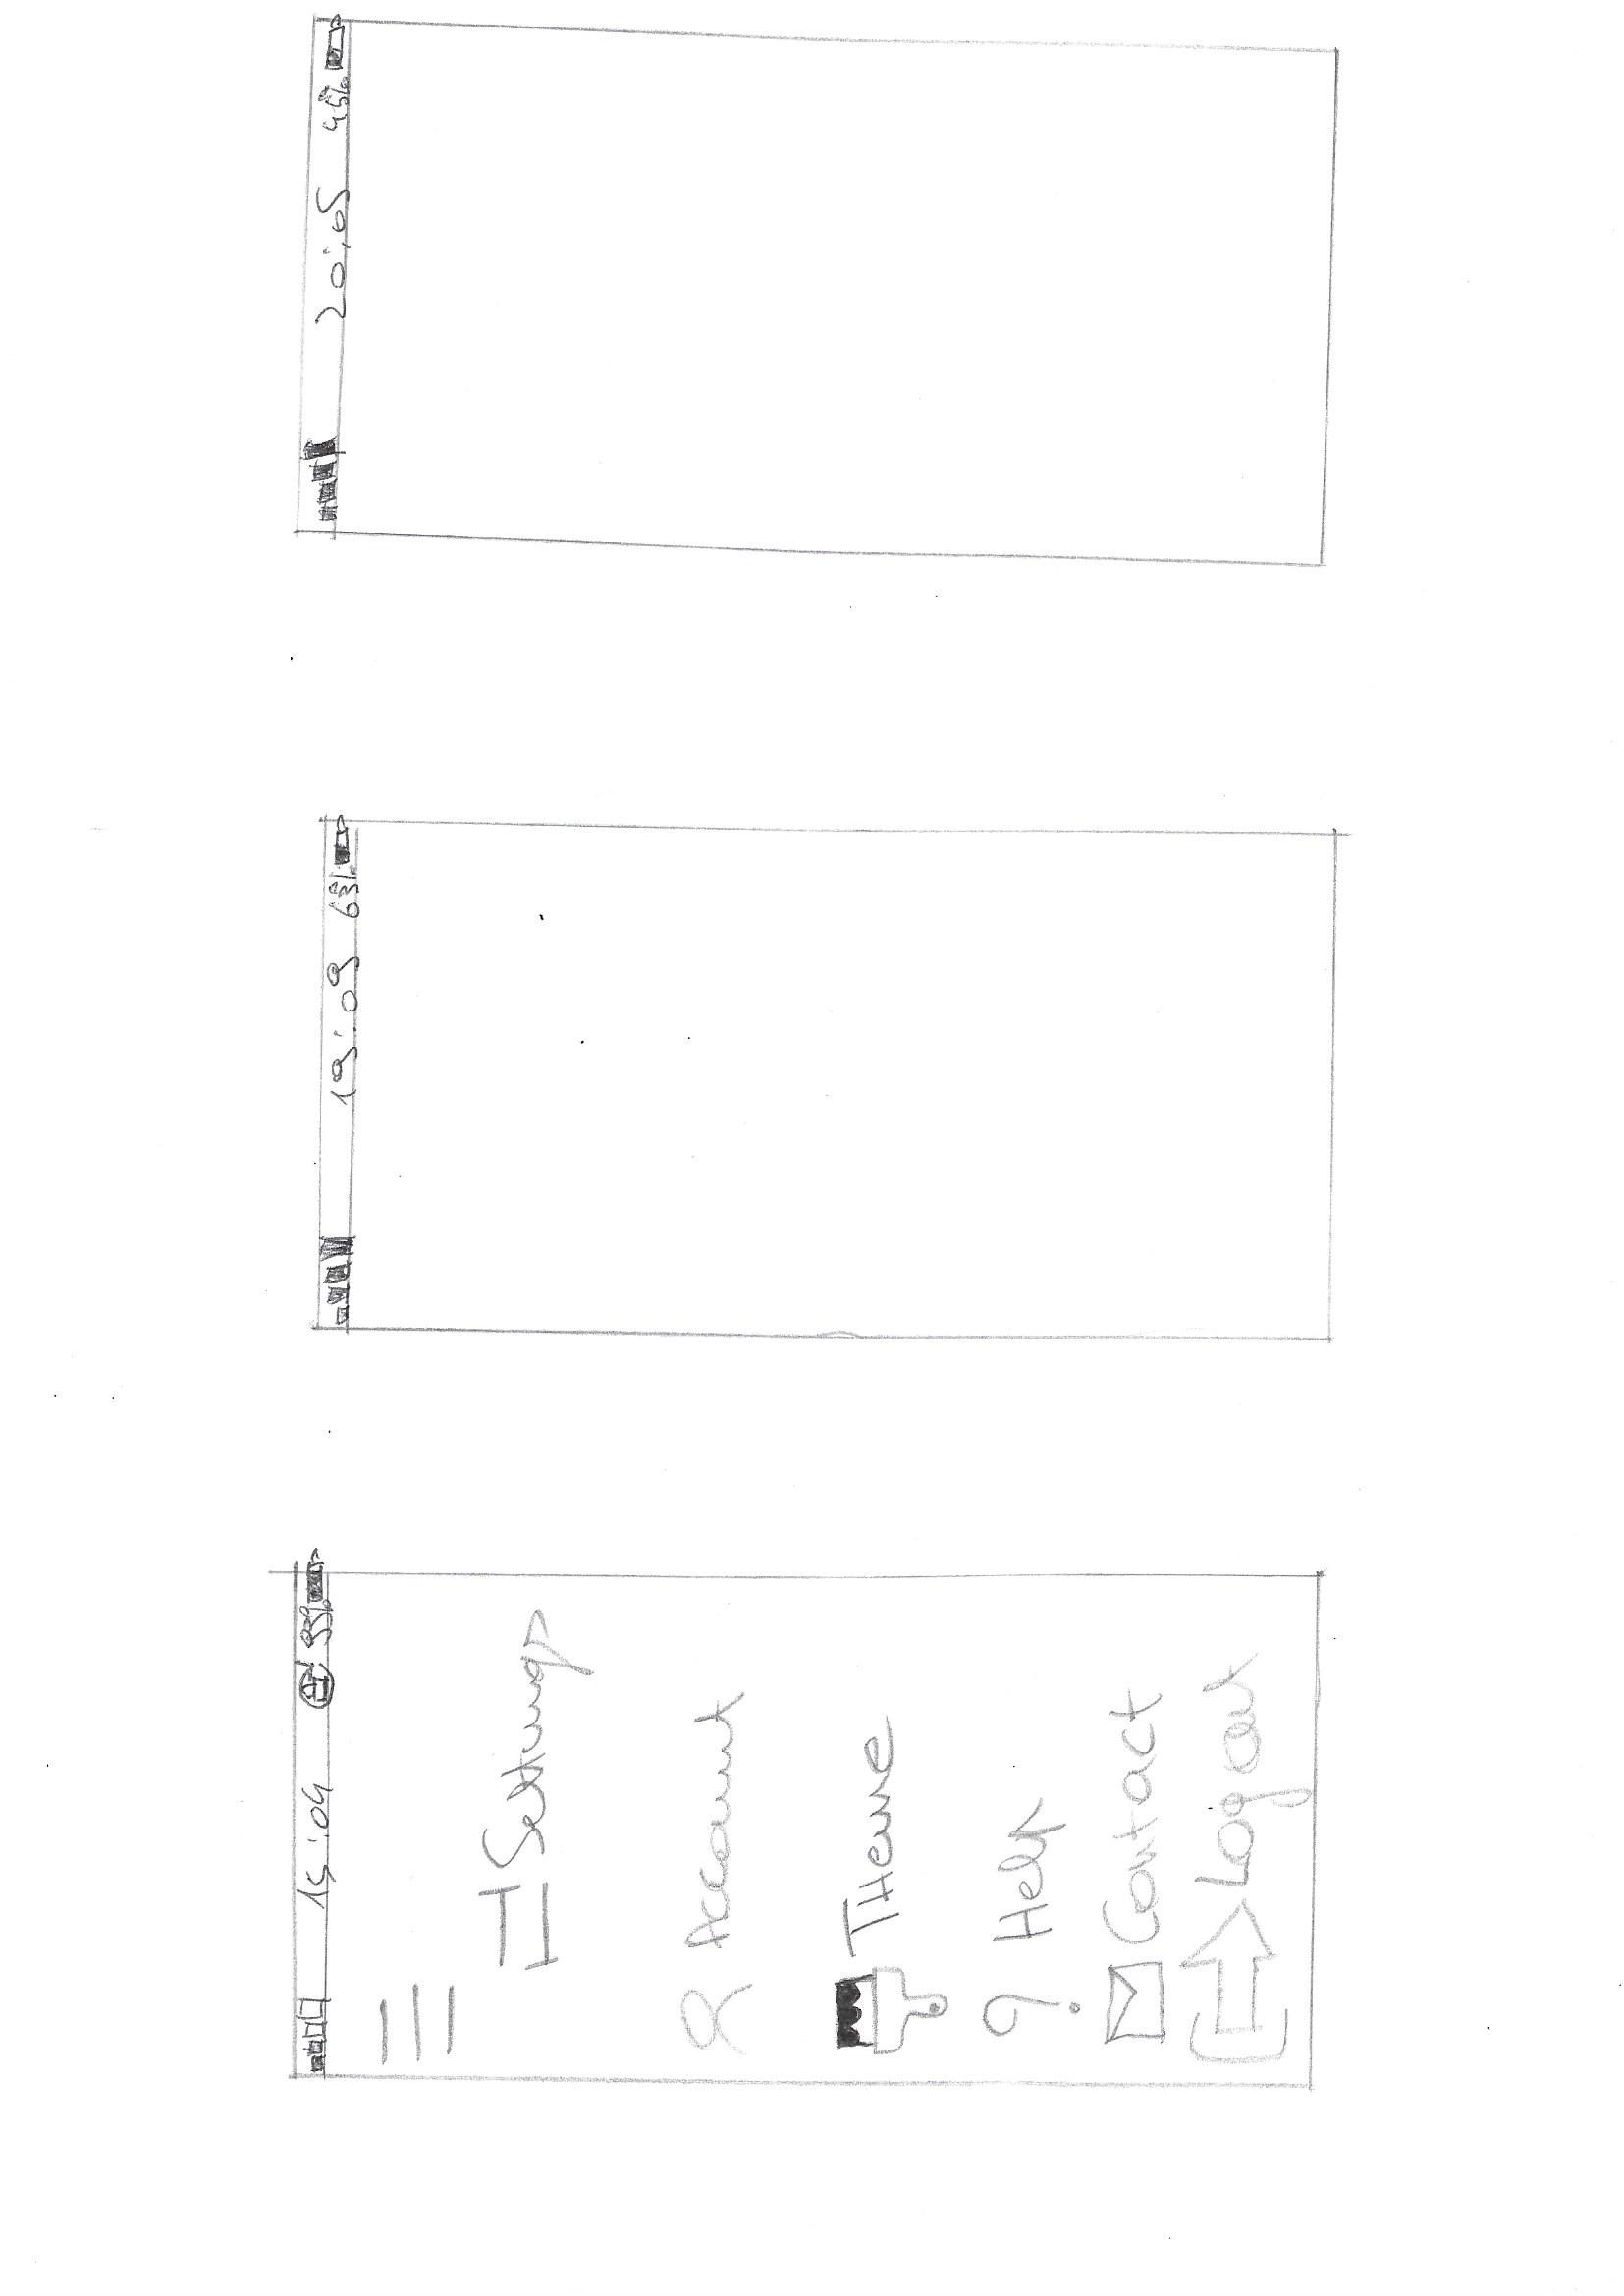 15:04 99%
Settings
Account
THeme
?
Help
Contact
Log out
19:09 63%
20:05 45%